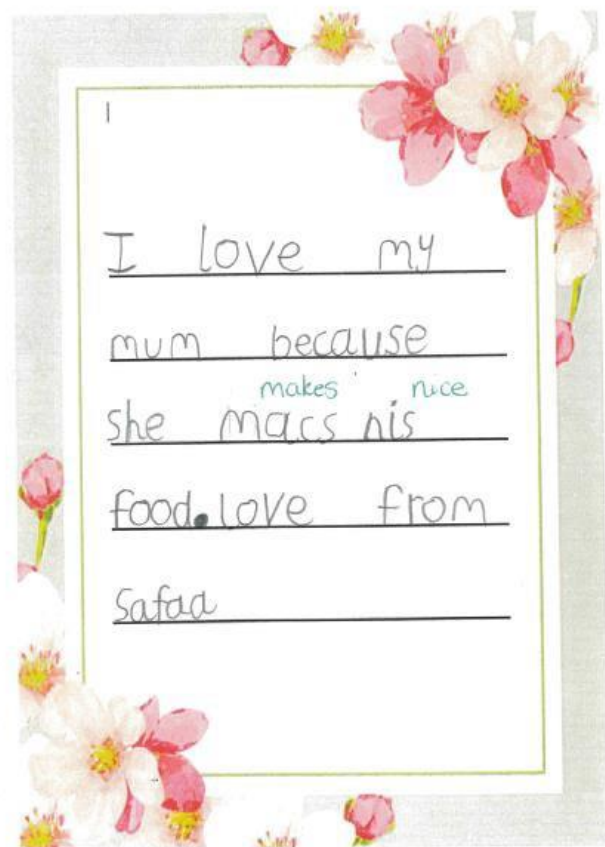 I love my
mum because
makes nice
she macs nis
food. love from
Safaa